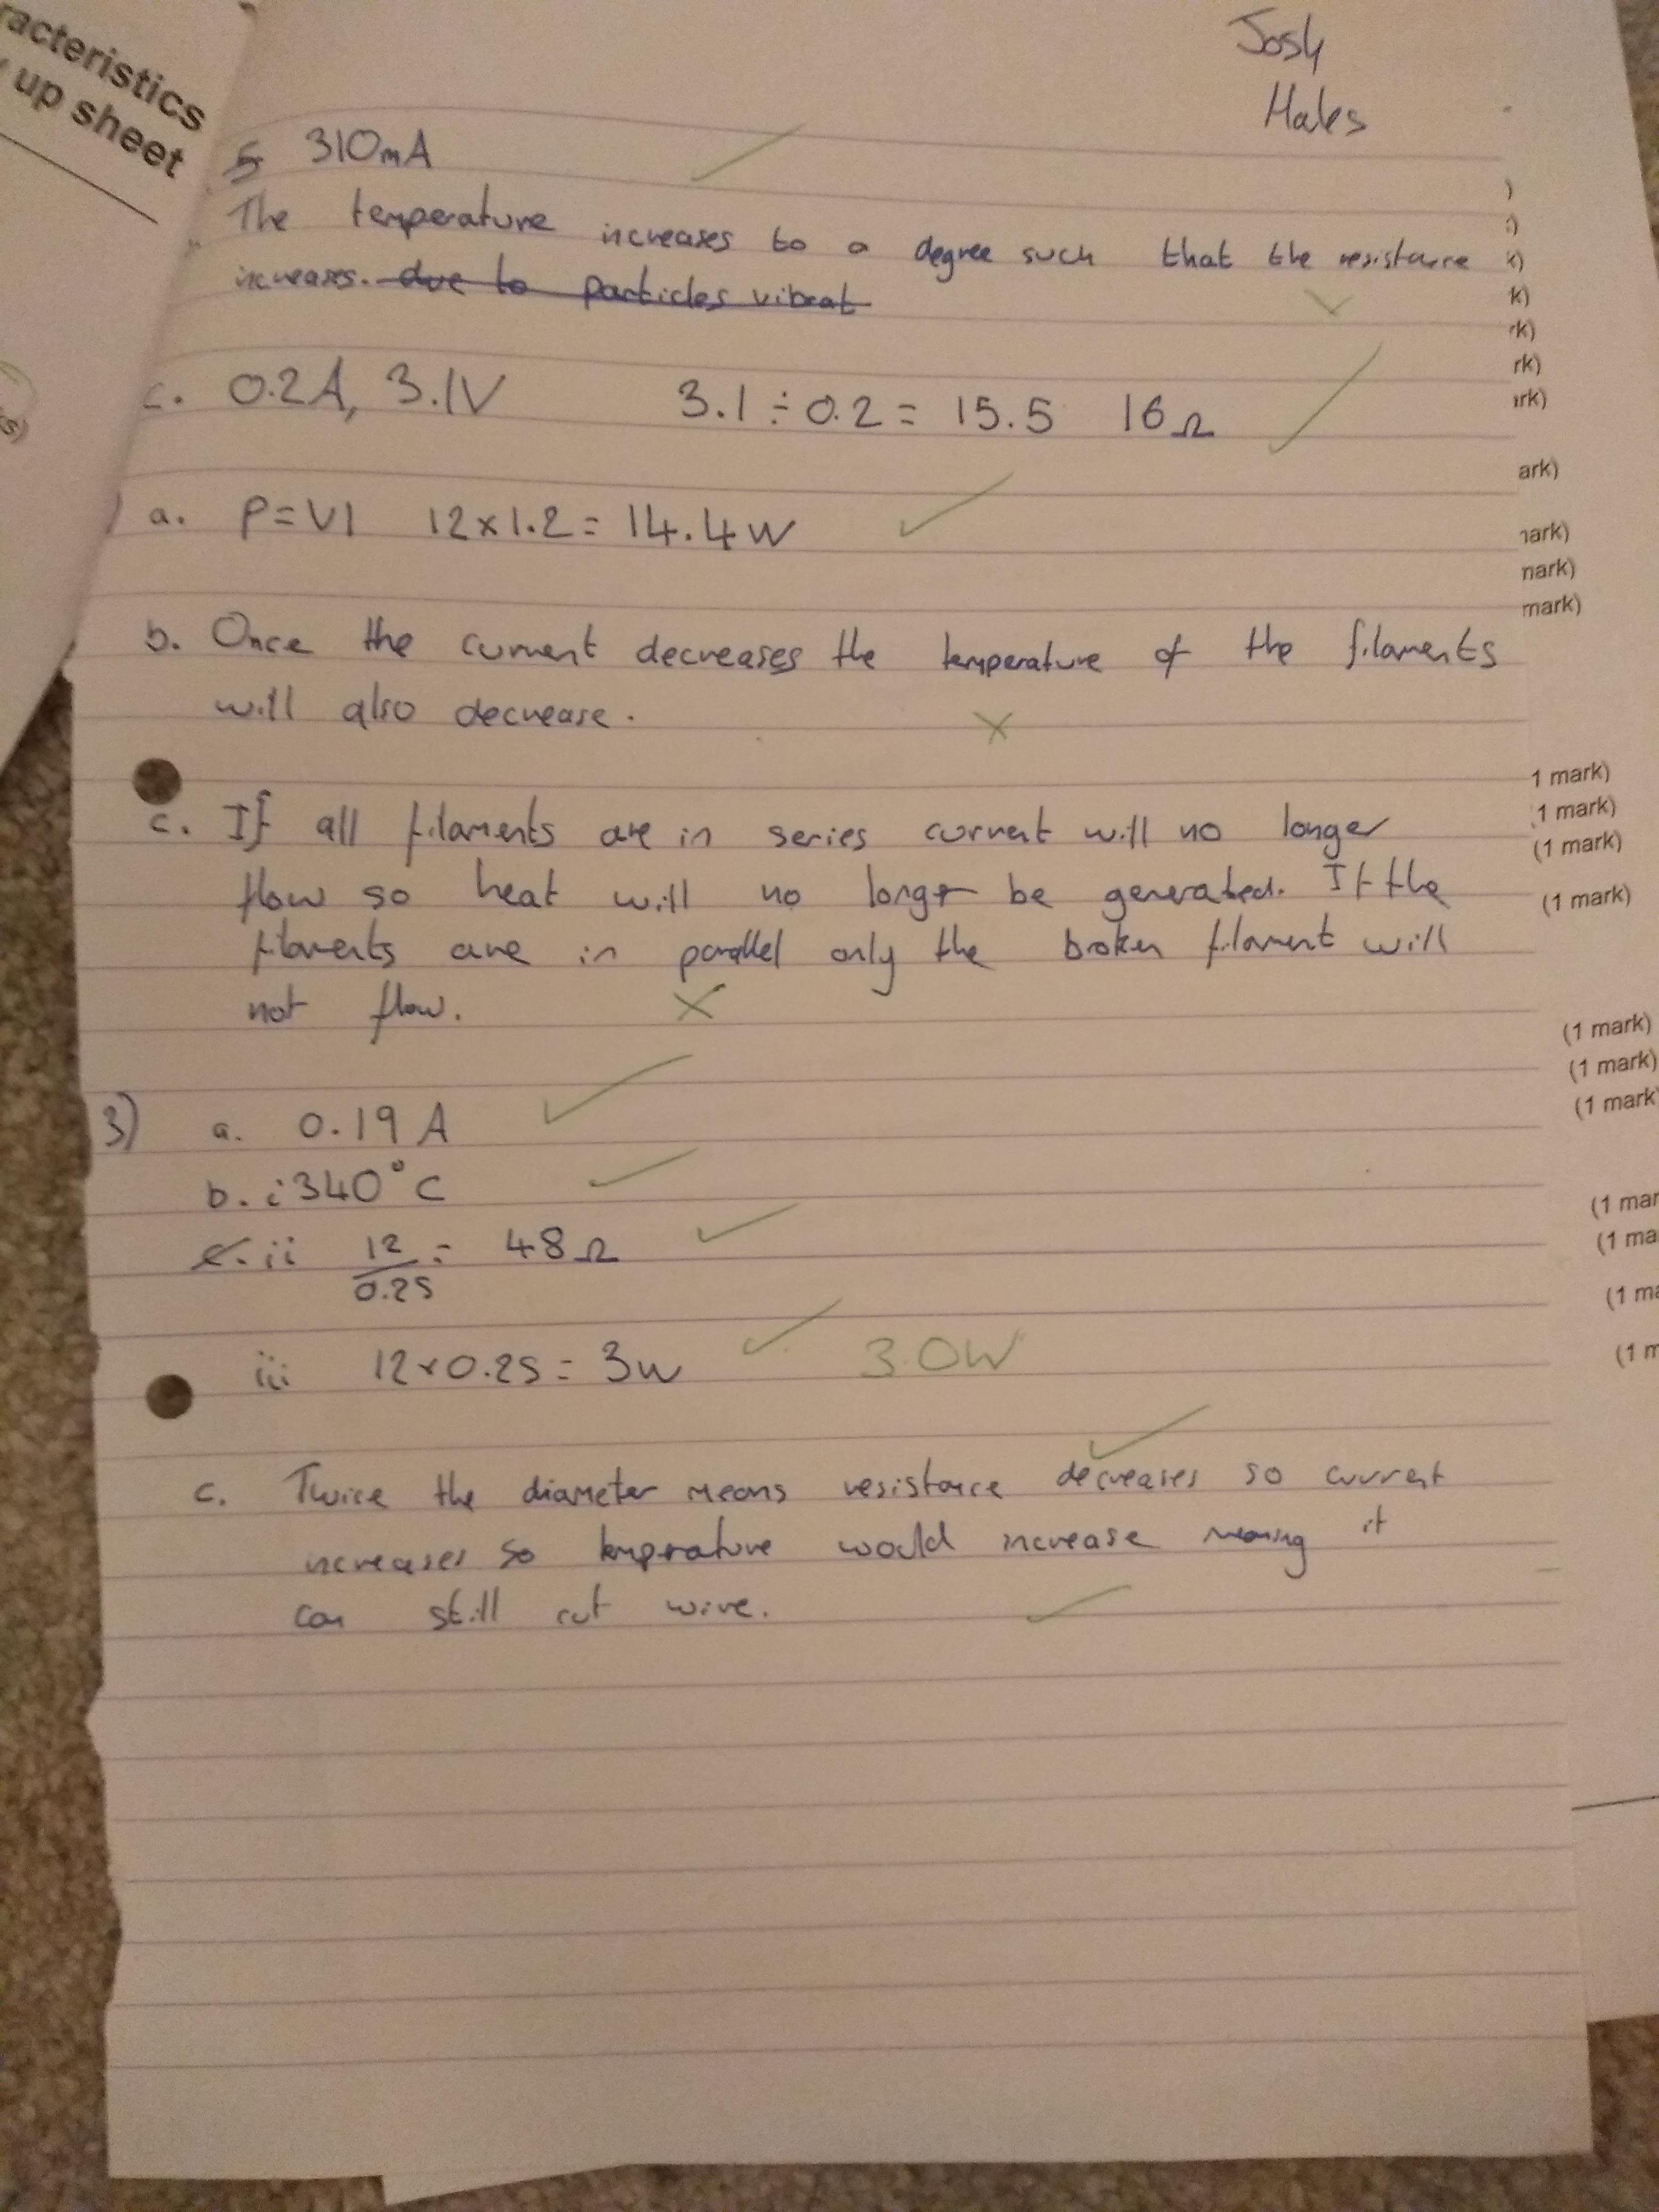 racteristics
up sheet
Josh
Hales
310mA
The temperature increases to a degree such that the resistance
increases. due to particles vibrat
c. 0.2A, 3.1V 3.1 ÷ 0.2 = 15.5 16Ω
) a. P=VI 12x1.2= 14.4W
b. Once the current decreases the temperature of the filaments
will also decrease.
c. If all filaments are in series current will no longer
flow so heat will no longer be generated. If the
filaments are in parallel only the broken filament will
not flow.
3) a. 0.19 A
b. i 340°C
c. ii 12/0.25 = 48Ω
iii 12×0.25 = 3w 3.0W
c. Twice the diameter means resistance decreases so current
increases so temprature would increase meaning it
can still cut wire.
s)
)
)
k)
k)
rk)
rk)
ark)
ark)
mark)
mark)
mark)
1 mark)
1 mark)
(1 mark)
(1 mark)
(1 mark)
(1 mark)
(1 mark)
(1 mar
(1 ma
(1 ma
(1 m